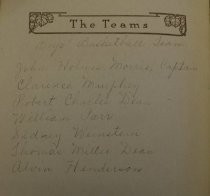 The Teams
Boys' Basketball Team
John Holmes Morris, Captain
Clarence Murphey
Robert Charles Dean
William Carr
Sidney Weinstein
Thomas Miller Dean
Alvin Henderson